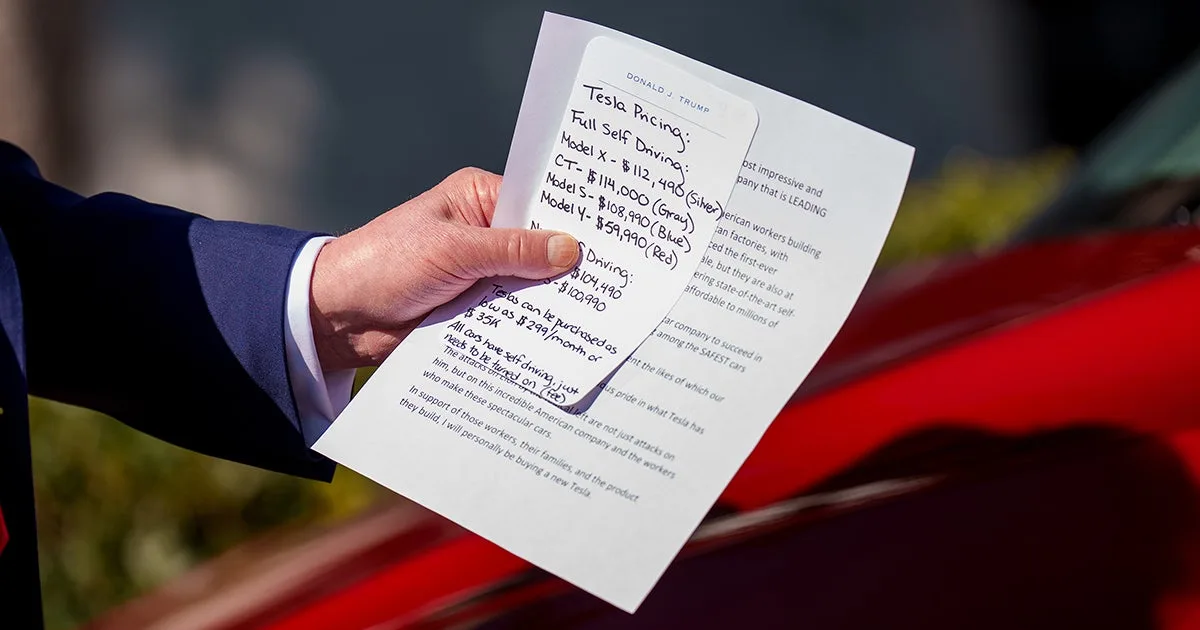 DONALD J. TRUMP
Tesla Pricing:
Full Self Driving:
Model X - $112,490 (Silver)
CT - $114,000 (Gray)
Model S - $108,990 (Blue)
Model Y - $59,990 (Red)
Driving:
$104,490
- $100,990
Teslas can be purchased as
low as $299/month or
$35K
All cars have self driving, just
needs to be turned on (fee)
most impressive and
company that is LEADING
American workers building
factories, with
the first-ever
but they are also at
state-of-the-art self-
affordable to millions of
car company to succeed in
among the SAFEST cars
the likes of which our
pride in what Tesla has
The attacks on left are not just attacks on
him, but on this incredible American company and the workers
who make these spectacular cars.
In support of those workers, their families, and the product
they build, I will personally be buying a new Tesla.